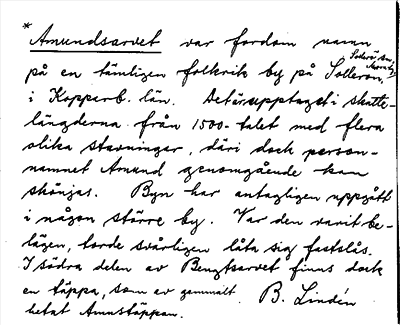 * Amundsarvet var fordom namn
på en tämligen folkrik by på Sollerön,
i Kopparb. län. Det är upptaget i skatte-
längderna från 1500-talet med flera
olika stavningar, däri dock person-
namnet Amund genomgående kan
skönjas. Byn har antagligen uppgått
i någon större by. Var den varit be-
lägen, torde svårligen låta sig fastslås.
I södra delen av Bengtsarvet finns dock
en täppa, som av gammalt
hetat Amustäppan.
B. Lindén